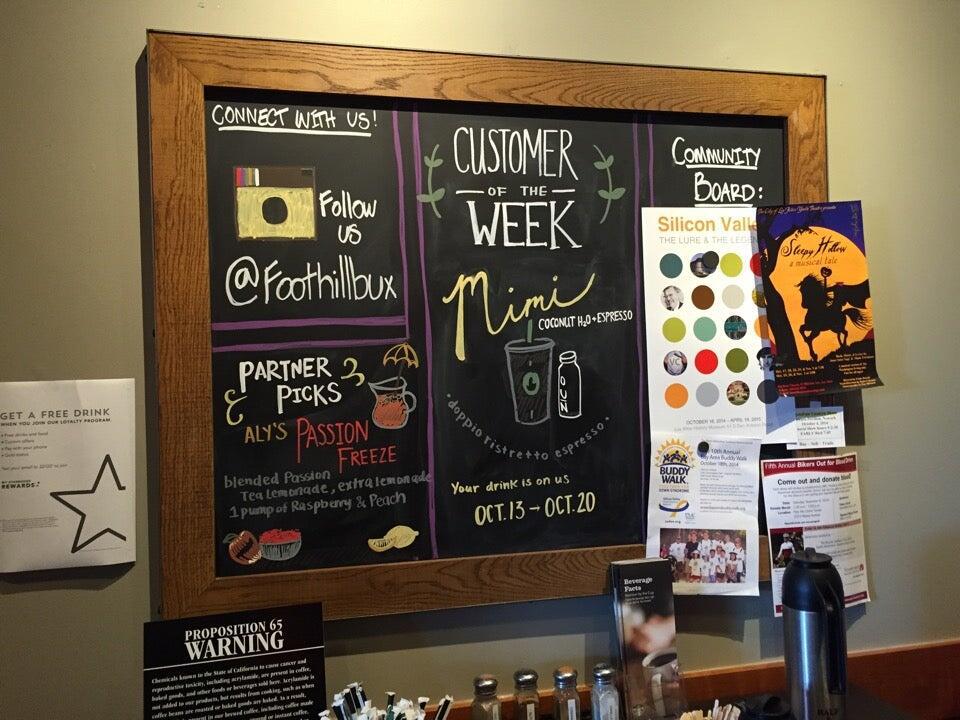 CONNECT WITH US!
Follow
US
@Foothillbux
PARTNER
PICKS
ALY'S PASSION
FREEZE
blended Passion
Tea Lemonade, extra lemonade
1 pump of Raspberry & Peach
CUSTOMER
OF THE
WEEK
Mimi
COCONUT H2O + ESPRESSO
doppio ristretto espresso
Your drink is on us
OCT. 13 → OCT. 20
COMMUNITY
BOARD:
Silicon Valle
THE LURE & THE LEGEN
VC
OCTOBER 16, 2014 - APRIL 19, 2015
Sleepy Hollow
a musical tale
10th Annual
Bay Area Buddy Walk
October 18th, 2014
BUDDY
WALK
Fifth Annual Bikers Out for Blood Drive
Come out and donate blood!
GET A FREE DRINK
WHEN YOU JOIN OUR LOYALTY PROGRAM.
• Free drinks and food
• Custom offers
• Pay with your phone
• Gold status
REWARDS
PROPOSITION 65
WARNING
Chemicals known to the State of California to cause cancer and
reproductive toxicity, including acrylamide, are present in coffee,
baked goods, and other foods or beverages sold here. Acrylamide is
not added to our products, but results from cooking, such as when
coffee beans are roasted or baked goods are baked. As a result,
present in our brewed coffee, including coffee made
ground or instant coffee.
Beverage
Facts
HALF